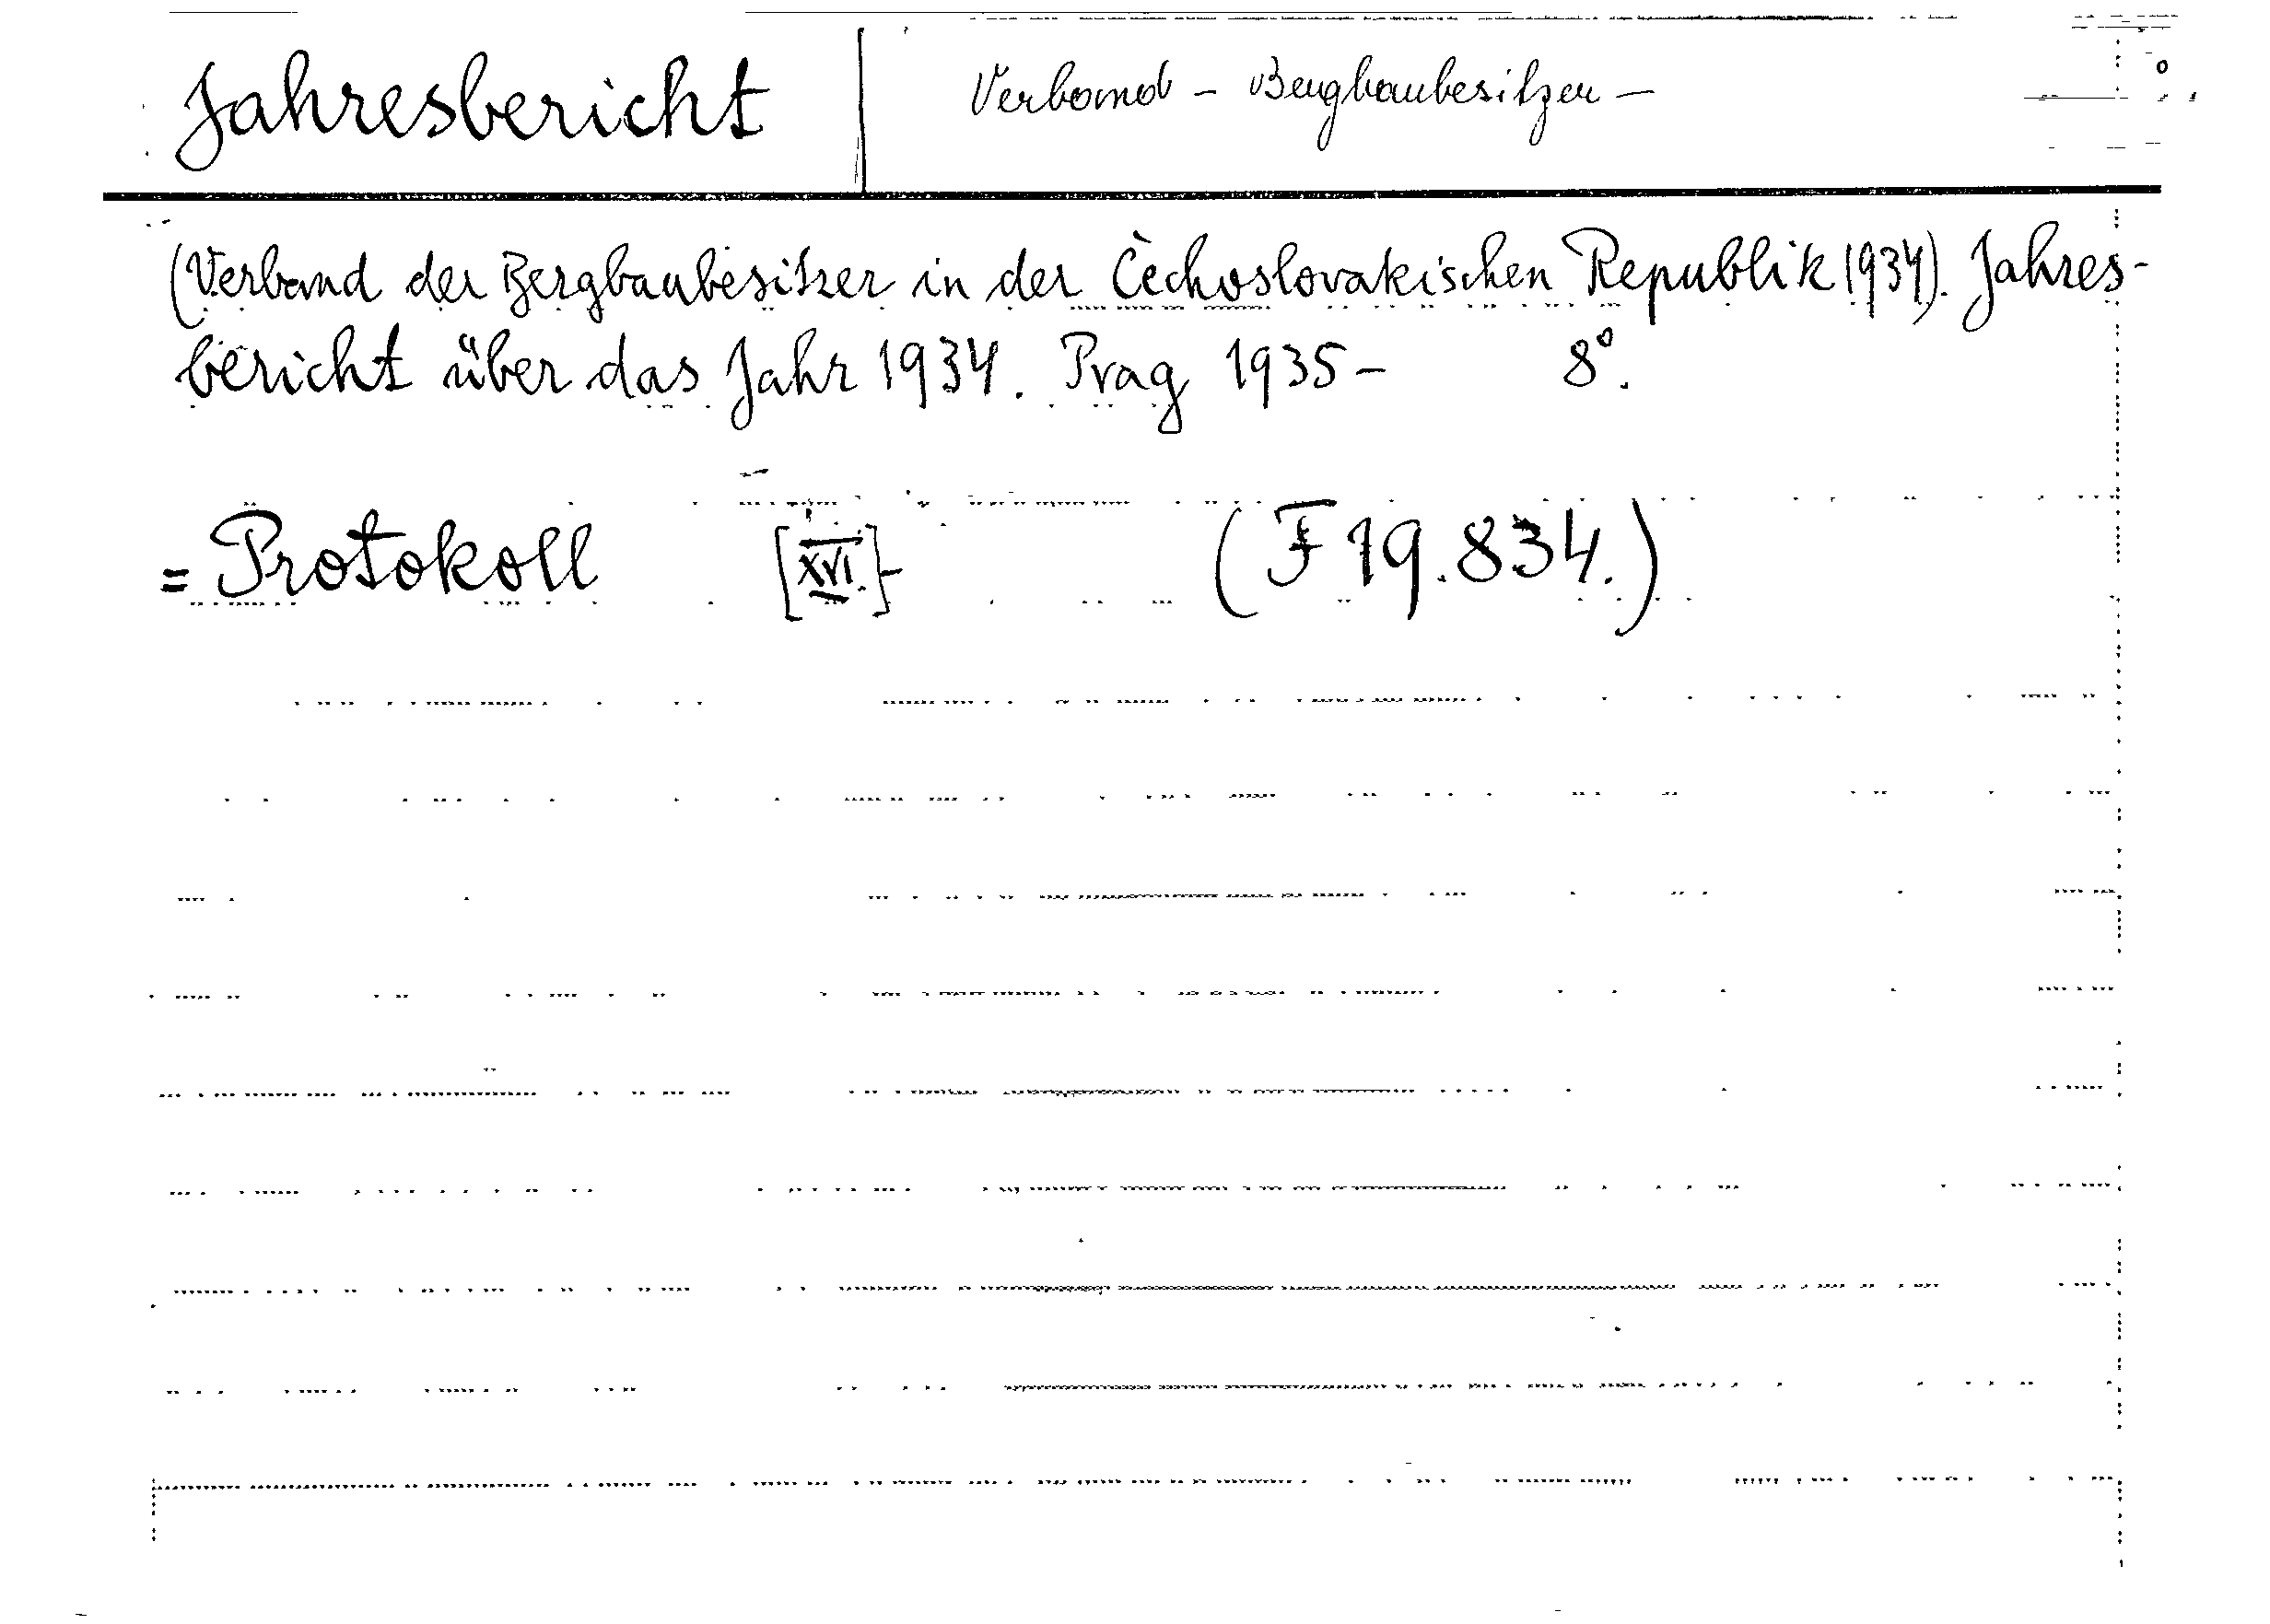 Jahresbericht
Verband - Bergbaubesitzer -
(Verband der Bergbaubesitzer in der Čechoslovakischen Republik 1934). Jahres-
bericht über das Jahr 1934. Prag 1935 - 8°.
= Protokoll [XVI.]- (F 19.834.)